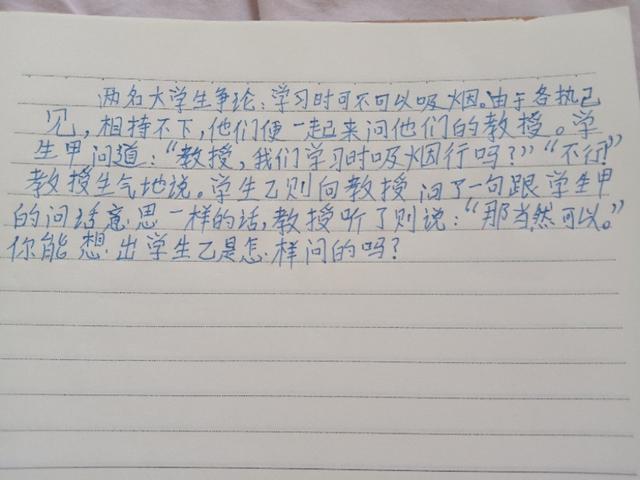 两名大学生争论:学习时可不可以吸烟。由于各执己
见,相持不下,他们便一起来问他们的教授。学
生甲问道:“教授,我们学习时吸烟行吗?”“不行”
教授生气地说。学生乙则向教授问了一句跟学生甲
的问话意思一样的话,教授听了则说:“那当然可以。”
你能想出学生乙是怎样问的吗?